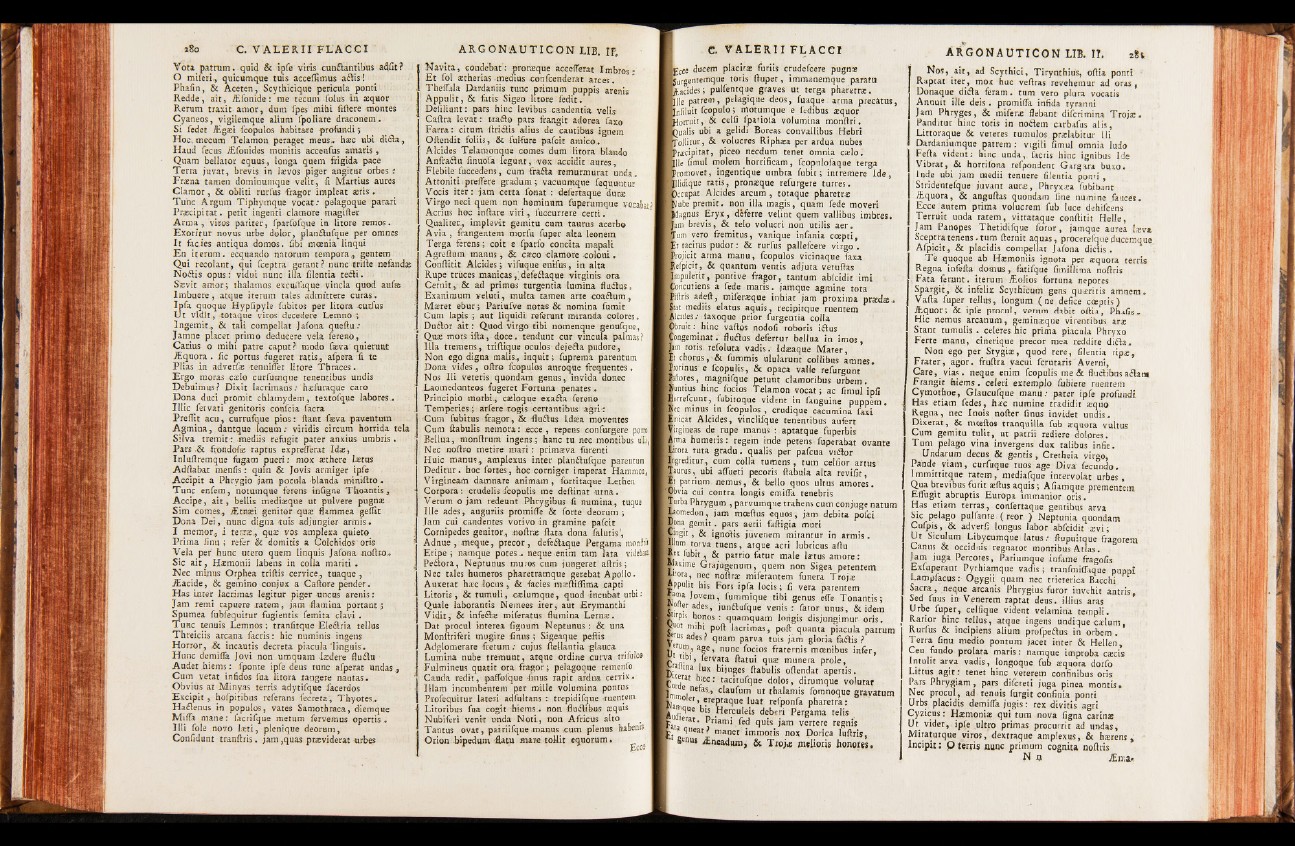 280 C. VALERII FLACCI
Vota patrum. quid & ipse viris cunctantibus adsit?
O miseri, quicumque tuis accessimus actis!
Phasin, & Aeeten, Scythicique pericula ponti
Redde, ait, Æsonide: me tecum solus in æquor
Rerum traxit amor, dum spes mihi sistere montes
Cyaneos, vigilemque alium spoliare draconem.
Si sedet Ægæi scopulos habitare profundi;
Hoc mecum Telamon peraget meus. hæc ubi dicta,
Haud secus Æsonides monitis accensus amaris,
Quam bellator equus, longa quem frigida pace
Terra juvat, brevis in lævos piger angitur orbes:
Fræna tamen dominumque velit, si Martius aures
Clamor, & obliti rursus fragor impleat æris.
Tunc Argum Tiphynque vocat: pelagoque parari
Præcipitat. petit ingenti clamore magister
Arma, viros pariter, sparsosque in litore remos.
Exoritur novus urbe dolor, planctusque per omnes
It facies antiqua domos. sibi mœnia linqui
En iterum. ecquando natorum tempora, gentem
Qui recolant, qui sceptra gerant? nunc triste nefandæ
Noctis opus: vidui nunc illa silentia tecti.
Sævit amor; thalamos excussaque vincla quod ausæ
Imbuere, atque iterum tales admittere curas.
Ipsa quoque Hypsipyle subitos per litora cursus
Ut vidit, totaque viros decedere Lemno;
Ingemit, & tali compellat Jasona questu:
Jamne placet primo deducere vela sereno,
Carius o mihi patre caput? modo sæva quierunt
Æquora. sic portus fugeret ratis, aspera si te
Plias in adversæ tenuisset litore Thraces.
Ergo moras cælo cursumque tenentibus undis
Debuimus? Dixit lacrimans: hæsuraque caro
Dona duci promit chlamydem, textosque labores.
Illic servati genitoris conscia sacra
Pressit acu, currusque pios: stant sæva paventum
Agmina, dantque locum: viridis circum horrida tela
Silva tremit: mediis refugit pater anxius umbris.
Pars & frondosæ raptus expresserat Idæ,
Inlustremque fugam pueri: mox æthere lætus
Adstabat mensis: quin & Jovis armiger ipse
Accipit a Phrygio jam pocula blanda ministro.
Tunc ensem, notumque ferens insigne Thoantis,
Accipe, ait, bellis mediæque ut pulvere pugnæ
Sim comes, Ætnæi genitor quæ flammea gessit
Dona Dei, nunc digna tuis adjungier armis.
I memor, i terræ, quæ vos amplexa quieto
Prima sinu; refer & domitis a Colchidos oris
Vela per hunc utero quem linquis Jasona nostro.
Sic ait, Hæmonii labens in colla mariti.
Nec minus Orphea tristis cervice, tuaque,
Æacide, & gemino conjux a Castore pendet.
Has inter lacrimas legitur piger uncus arenis:
Jam remi rapuere ratem, jam flamina portant;
Spumea subsequitur fugientis semita clavi.
Tunc tenuis Lemnos: transitque Electria tellus
Threiciis arcana sacris: hic numinis ingens
Horror, & incautis decreta piacula linguis.
Hunc demissa Jovi non umquam lædere fluctu
Audet hiems: sponte ipse deus tunc asperat undas,
Cum vetat infidos sua litora tangere nautas.
Obvius at Minyas terris adytisque sacerdos
Excipit, hospitibus reserans secreta, Thyotes.
Hactenus in populos, vates Samothraca, diemque
Missa mane: sacrisque metum servemus opertis.
Illi sole novo læti, plenique deorum,
Considunt transtris. jam, quas præviderat urbes
ARGONAUTICON LIB. II.
Navita, condebat: proræque accesserat Imbros:
Et sol ætherias medius conscenderat arces.
Thessala Dardaniis tunc primum puppis arenis
Appulit, & fatis Sigeo litore sedit.
Desiliunt: pars hinc levibus candentia velis
Castra levat: tracto pars frangit adorea saxo
Farra: citum strictis alius de cautibus ignem
Ostendit foliis, & sulfure pascit amico.
Alcides Telamonque comes dum litora blando
Anfractu sinuosa legunt, vox accidit aures,
Flebile succedens, cum fracta remurmurat unda.
Attoniti pressere gradum; vacuumque sequuntur
Vocis iter: jam certa sonat: desertaque duræ
Virgo neci quem non hominum superumque vocabat?
Acrius hoc instare viri, succurrere certi.
Qualiter, implevit gemitu cum taurus acerbo
Avia, frangentem morsu super alta leonem
Terga ferens; coit e sparso concita mapali
Agrestum manus, & cæco clamore coloni.
Constitit Alcides; visuque enisus, in alta
Rupe truces manicas, defectaque virginis ora
Cernit, & ad primos turgentia lumina fluctus.
Exanimum veluti, multa tamen arte coactum,
Mæret ebur; Pariusve notas & nomina sumit
Cum lapis; aut liquidi referunt miranda colores.
Ductor ait: Quod virgo tibi nomenque genusque,
Quæ mors ista, doce. tendunt cur vincula palmas?
Illa tremens, tristique oculos dejecta pudore,
Non ego digna malis, inquit; suprema parentum
Dona vides, ostro scopulos auroque frequentes.
Nos Ili veteris quondam genus, invida donec
Laomedonteos fugeret Fortuna penates.
Principio morbi, cæloque exacta sereno
Temperies; arsere rogis certantibus agri:
Cum subitus fragor, & fluctus Idæa moventes
Cum stabulis nemora: ecce, repens consurgere ponto
Bellua, monstrum ingens; hanc tu nec montibus ullis,
Nec nostro metire mari: primæva furenti
Huic manus, amplexus inter planctusque parentum
Deditur. hoc sortes, hoc corniger imperat Hammon,
Virgineam damnare animam, sortitaque Lethen
Corpora: crudelis scopulis me destinat urna.
Verum o jam redeunt Phrygibus si numina, tuque
Ille ades, auguriis promisse & sorte deorum;
Jam cui candentes votivo in gramine pascit
Cornipedes genitor, nostræ stata dona salutis,
Adnue, meque, precor, defectaque Pergama monstris
Eripe; namque potes. neque enim tam lata videbam
Pectora, Neptunus muros cum jungeret astris;
Nec tales humeros pharetramque gerebat Apollo.
Auxerat hæc locus, & facies mœstissima capti
Litoris, & tumuli, cælumque, quod incubat urbi:
Quale laborantis Nemees iter, aut Erymanthi
Vidit, & infectæ miseratus flumina Lernæ.
Dat procul interea signum Neptunus: & una
Monstriferi mugire sinus; Sigeaque pestis
Adglomerare fretum: cujus stellantia glauca
Lumina nube tremunt, atque ordine curva trisulco
Fulmineus quatit ora fragor; pelagoque remenso
Cauda redit, passosque sinus rapit ardua cervix.
Illam incumbentem per mille volumina pontus
Prosequitur lateri adsultans: trepidisque ruentem
Litoribus sua cogit hiems. non fluctibus æquis
Nubiferi venit unda Noti, non Africus alto
Tantus ovat, patriisque manus cum plenus habenis
Orion bipedum flatu mare tollit equorum.
Ecce
C. VALERII FLACCI
Ecce ducem placitæ furiis crudescere pugnæ
Surgentemque toris stupet, immanemque paratu
Æacides; pulsentque graves ut terga pharetræ.
Ille patrem, pelagique deos, suaque arma precatus,
Insiluit scopulo; motumque e sedibus æquor
Horruit, & celsi spatiosa volumina monstri.
Qualis ubi a gelidi Boreas convallibus Hebri
Tollitur, & volucres Riphæa per ardua nubes
Præcipitat, piceo necdum tenet omnia cælo.
Ille simul molem horrificam, scopulosaque terga
Promovet, ingentique umbra subit; intremere Ide,
Illidique ratis, pronæque resurgere turres.
Occupat Alcides arcum, totaque pharetræ
Nube premit. non illa magis, quam sede moveri
Magnus Eryx, deferre velint quem vallibus imbres.
Jam brevis, & telo volucri non utilis aer.
Tum vero fremitus, vanique insania cœpti,
Et tacitus pudor: & rursus pallescere virgo.
Projicit arma manu, scopulos vicinaque saxa
Respicit, & quantum ventis adjuta vetustas
Impulerit, pontive fragor, tantum abscidit imi
Concutiens a sede maris. jamque agmine toto
Pistris adest, miseræque inhiat jam proxima prædæ.
Stat mediis elatus aquis, recipitque ruentem
Alcides: saxoque prior surgentia colla
Obruit: hinc vastos nodosi roboris ictus
Congeminat. fluctus defertur bellua in imos,
Jam totis resoluta vadis. Idæaque Mater,
Et chorus, & summis ulularunt collibus amnes.
Protinus e scopulis, & opaca valle resurgunt
Pastores, magnisque petunt clamoribus urbem.
Nuntius hinc socios Telamon vocat; ac simul ipsi
Horrescunt, subitoque vident in sanguine puppem.
Nec minus in scopulos, crudique cacumina saxi
Emicat Alcides, vinclisque tenentibus aufert
Virgineas de rupe manus: aptatque superbis
Arma humeris: regem inde petens superabat ovante
Litora tuta gradu. qualis per pascua victor
Ingreditur, cum colla tumens, tum celsior armis
Taurus, ubi assueti pecoris stabula alta revisit,
Et patrium nemus, & bello quos ultus amores.
Obvia cui contra longis emissa tenebris
Turba Phrygum, parvumque trahens cum conjuge natum
Laomedon, jam mœstus equos, jam debita posci
Dona gemit. pars aerii fastigia mori
Cingit, & ignotis juvenem mirantur in armis.
Illum torva tuens, atque acri lubricus astu
Rex subit, & patrio fatur male lætus amore:
Maxime Grajugenum, quem non Sigea petentem
Litora, nec nostræ miserantem funera Trojæ
Appulit his Fors ipsa locis; si vera parentem
Fama Jovem, summique tibi genus esse Tonantis;
Noster ades, junctusque venis: sator unus, & idem
Stirpis honos: quamquam longis disjungimur oris.
Quot mihi post lacrimas, post quanta piacula patrum
Serus ades? quam parva tuis jam gloria factis?
Verum, age, nunc socios fraternis mœnibus infer,
Ut tibi, servata statui quæ munera prole,
Crastina lux bijuges stabulis ostendat apertis.
Dixerat hæc: tacitusque dolos, dirumque volutat
Corde nefas, clausum ut thalamis somnoque gravatum
Immolet, ereptaque luat responsa pharetra:
Namque bis Herculeis deberi Pergama telis
Audierat. Priami sed quis jam vertere regnis
Fata queat? manet immotis nox Dorica lustris,
Et genus Æneadum, & Trojæ melioris honores.
ARGONAUTICON LIB. II. 281
Nos, ait, ad Scythici, Tirynthius, ostia ponti
Raptat iter, mox huc vestras revehemur ad oras,
Donaque dicta feram. tum vero plura vocatis
Annuit ille deis. promissa infida tyranni
Jam Phryges, & miseræ flebant discrimina Trojæ.
Panditur hinc totis in noctem carbasus alis,
Littoraque & veteres tumulos prælabitur Ili
Dardaniumque patrem: vigili simul omnia ludo
Festa vident: hinc unda, sacris hinc ignibus Ide
Vibrat, & horrisona respondent Gargara buxo.
Inde ubi jam medii tenuere silentia ponti,
Stridentesque juvant auræ, Phryxæa subibant
Æquora, & angustas quondam sine numine fauces.
Ecce autem prima volucrem sub luce dehiscens
Terruit unda ratem, vittataque constitit Helle,
Jam Panopes Thetidisque soror, jamque aurea læva
Sceptra tenens. tum sternit aquas, proceresque ducemque
Aspicit, & placidis compellat Jasona dictis.
Te quoque ab Hæmoniis ignota per æquora terris
Regna infesta domus, fatisque simillima nostris
Fata ferunt. iterum Æolios fortuna nepotes
Spargit, & infelix Scythicum gens quæritis amnem.
Vasta super tellus, longum (ne defice cœptis)
Æquor: & ipse procul, verum dabit ostia, Phasis.
Hic nemus arcanum, geminæque virentibus aræ
Stant tumulis. celeres hic prima piacula Phryxo
Ferte manu, cinerique precor mea reddite dicta.
Non ego per Stygiæ, quod rere, silentia ripæ,
Frater, agor. frustra vacui scrutaris Averni,
Care, vias. neque enim scopulis me & fluctibus actam
Frangit hiems. celeri extemplo subiere ruentem
Cymothoe, Glaucusque manu: pater ipse profundi
Has etiam sedes, hæc numine tradidit æquo
Regna, nec Inois noster sinus invidet undis.
Dixerat, & mœstos tranquilla sub æquora vultus
Cum gemitu tulit, ut patrii rediere dolores.
Tum pelago vina invergens dux talibus insit.
Undarum decus & gentis, Cretheia virgo,
Pande viam, cursuque tuos age Diva secundo.
Immittitque ratem, mediasque intervolat urbes,
Qua brevibus furit æstus aquis; Asiamque prementem
Effugit abruptis Europa immanior oris.
Has etiam terras, consertaque gentibus arva
Sic pelago pulsante (reor) Neptunia quondam
Cuspis, & adversi longus labor abscidit ævi;
Ut Siculum Libycumque latus: stupuitque fragorem
Canus & occiduis regnator montibus Atlas.
Jam juga Percotes, Pariumque infame fragosis
Exsuperant Pythiamque vadis; transmissaque puppi
Lampsacus: Ogygii quam nec trieterica Bacchi
Sacra, neque arcanis Phrygius furor invehit antris,
Sed suus in Venerem raptat deus. illius aras
Urbe super, celsique vident velamina templi.
Rarior hinc tellus, atque ingens undique cælum,
Rursus & incipiens alium prospectus in orbem.
Terra sinu medio pontum jacet inter & Hellen,
Ceu fundo prolata maris: namque improba cæcis
Intulit arva vadis, longoque sub æquora dorso
Littus agit: tenet hinc veterem confinibus oris
Pars Phrygiam, pars discreti juga pinea montis.
Nec procul, ad tenuis surgit confinia ponti
Urbs placidis demissa jugis: rex divitis agri
Cyzicus: Hæmoniæ qui tum nova signa carinæ
Ut videt, ipse ultro primas procurrit ad undas,
Miraturque viros, dextraque amplexus, & hærens,
Incipit: O terris nunc primum cognita nostris
N n
Æma-